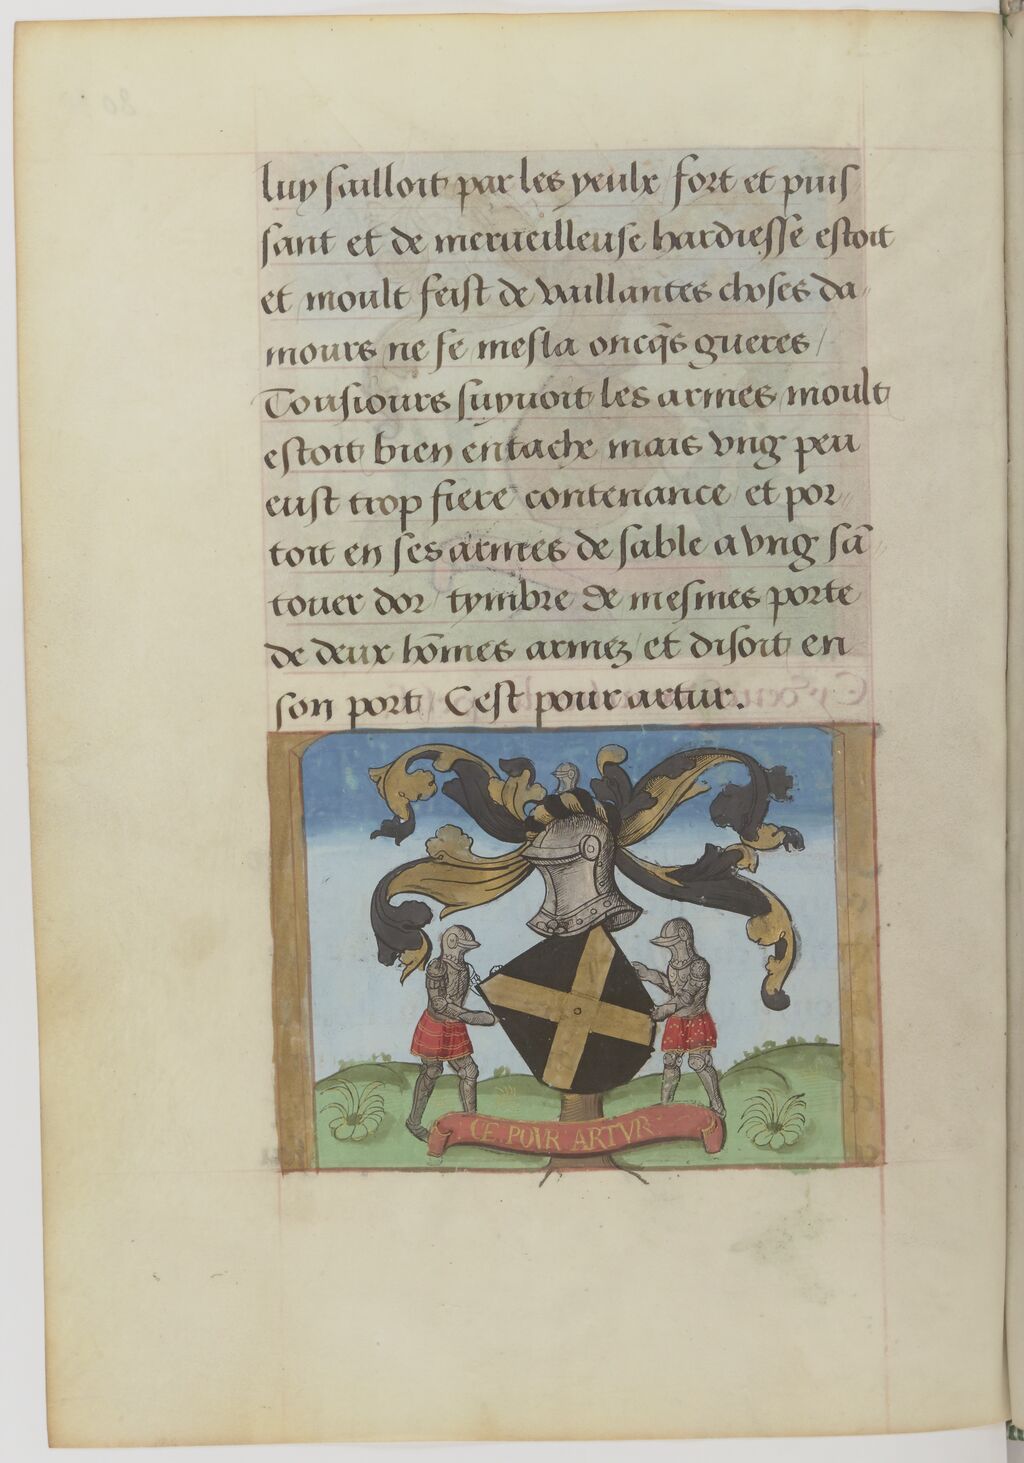 luy sailloit par les yeulx fort et puis
sant et de merueilleuse hardiesse estoit
et moult feist de vaillantes choses da
mours ne se mesla oncq̃s gueres /
Tousiours suyuoit les armes moult
estoit bien entache mais vng peu
eust trop fiere contenance et por
toit en ses armes de sable a vng sā
touer dor / tymbre de mesmes porte
de deux hōmes armez / et disoit en
son port Cest pour artur.
CE POVR ARTVR